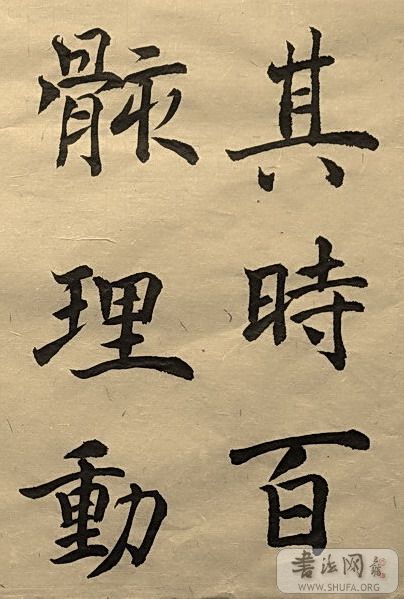 其時百
骸理動
書法网
WWW.SHUFA.ORG